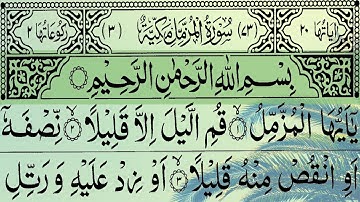 اٰیَاتُهَا ۲۰ (۷۳) سُوْرَةُ الْمُزَّمِّلِ مَكِّیَّةٌ (۳) رُكُوْعَاتُهَا ۲
بِسْمِ اللّٰهِ الرَّحْمٰنِ الرَّحِیْمِ
یٰۤاَیُّهَا الْمُزَّمِّلُ ۱ قُمِ الَّیْلَ اِلَّا قَلِیْلًا ۲ نِّصْفَهٗۤ
اَوِ انْقُصْ مِنْهُ قَلِیْلًا ۳ اَوْ زِدْ عَلَیْهِ وَ رَتِّلِ